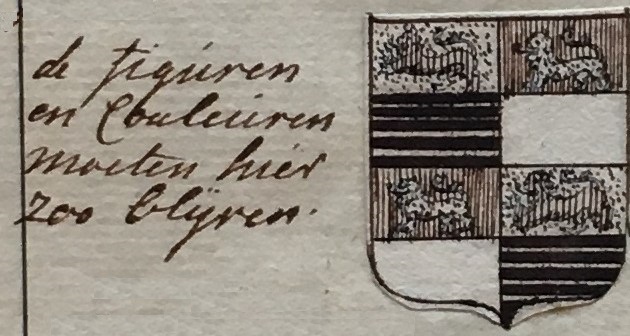 de figuren
en Couleuren
moeten hier
zoo blÿven.